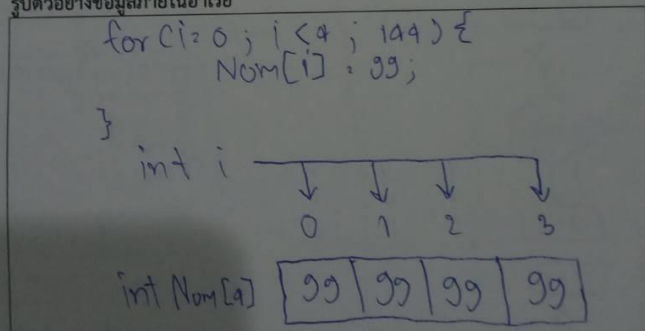 รูปตัวอย่างข้อมูลภายในอาเรย์
for (i=0 ; i<4 ; i++) {
Nom[i] = 99;
}
int i
0 1 2 3
int Nom[4] 99 99 99 99